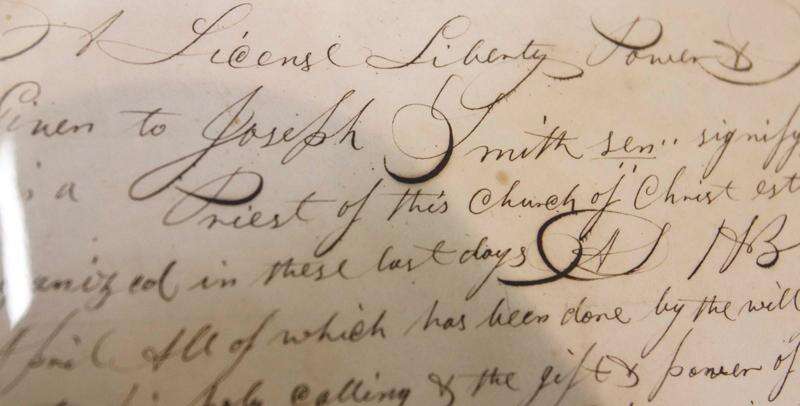 A License Liberty Power &
Given to Joseph Smith senr signify
is a Priest of this Church of Christ est
anized in these last days
April All of which has been done by the will
holy calling & the gift & power of